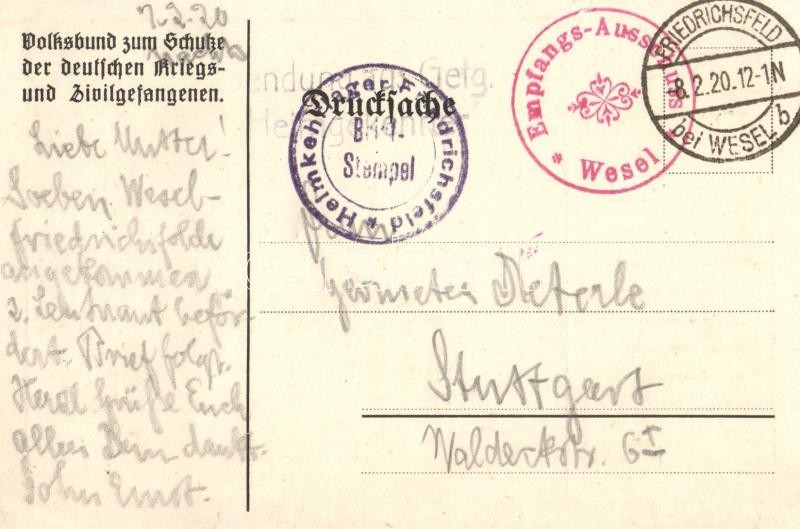 7.2.20
Nachts
Volksbund zum Schutze
der deutschen Kriegs-
und Zivilgefangenen.
Liebe Mutter!
Soeben Wesel-
friedrichsfelde
angekommen
z. Leutnant beför-
dert. Brief folgt.
Herzl Grüße Euch
allen Dein dankb.
Sohn Ernst.
Drucksache
Heimkehrlager Friedrichsfeld
Stempel
Empfangs-Ausschuss
* Wesel *
FRIEDRICHSFELD
8.2.20.12-1N
bei WESEL b
Geometer Dieterle
Stuttgart
Waldeckstr. 6 I